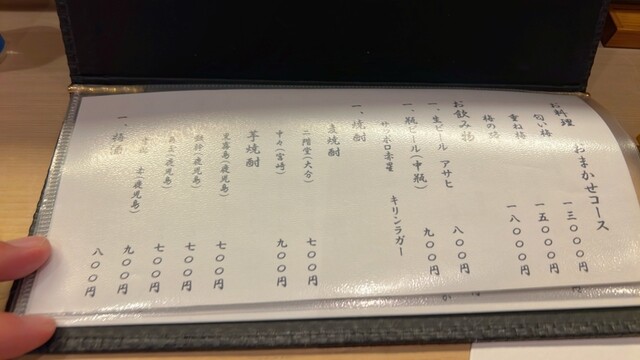 お料理　おまかせコース
匂い梅　一三〇〇〇円
重ね梅　一五〇〇〇円
梅の　一八〇〇〇円
お飲み物
一、生ビール　アサヒ　八〇〇円
一、瓶ビール(中瓶)　九〇〇円
サッポロ赤星　キリンラガー
一、焼酎
麦焼酎
二階堂(大分)　七〇〇円
中々(宮崎)　九〇〇円
芋焼酎
黒霧島(鹿児島)　七〇〇円
(鹿児島)　七〇〇円
(鹿児島)　七〇〇円
(鹿児島)　九〇〇円
一、梅酒　八〇〇円